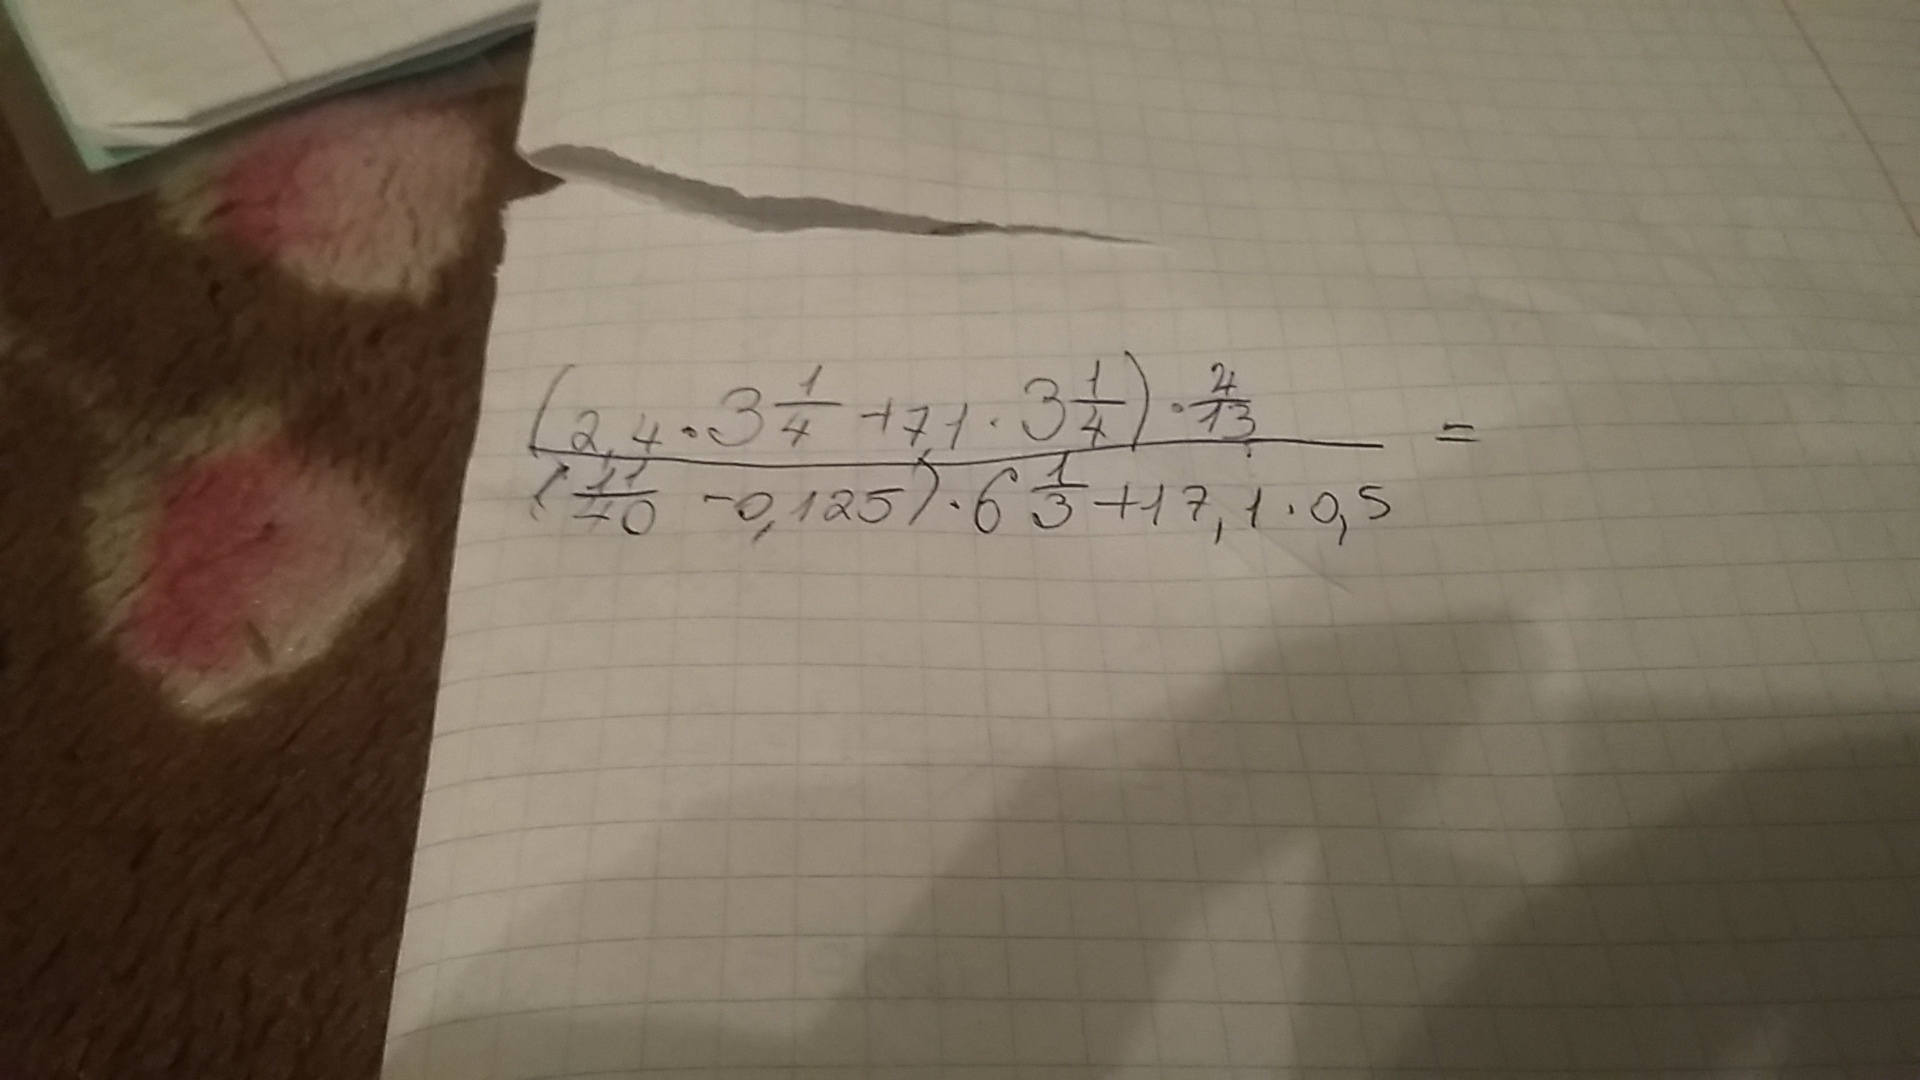 (2,4 · 3 1/4 + 7,1 · 3 1/4) · 4/13 =
(11/40 - 0,125) · 6 1/3 + 17,1 · 0,5